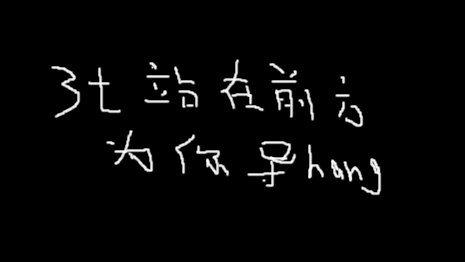 3t 站在前方
为你导hang